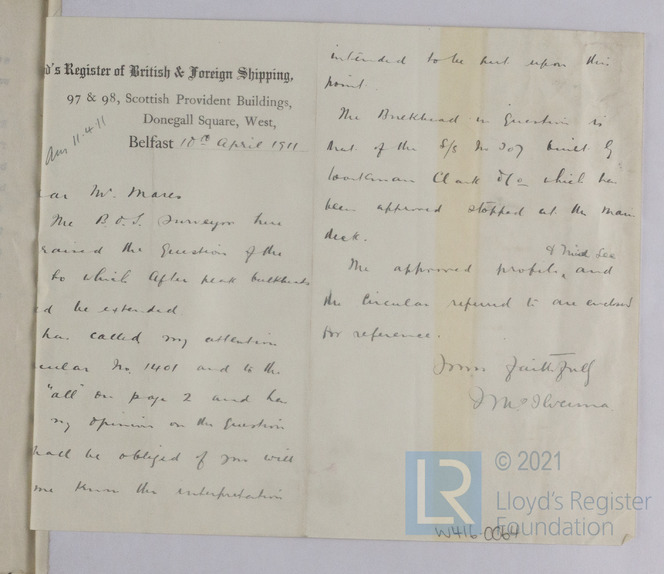 d's Register of British & Foreign Shipping,
97 & 98, Scottish Provident Buildings,
Donegall Square, West,
Belfast 10th April 1911
Ans 11.4.11
ar Mr Mares
The B.o.T. Surveyor here
raised the question of the
to which after peak bulkheads
d be extended
has called my attention
cular No. 1401 and to the
"all" on page 2 and has
my opinion on the question
hall be obliged if you will
me know the interpretation
intended to be put upon this
point.
The Bulkhead in question is
that of the S/S No 307 built by
Workman Clark & Co which has
been approved stopped at the main
deck.
& Mid Sec
The approved profile, and
the Circular referred to are enclosed
for reference.
Yours faithfully
LR
© 2021
Lloyd's Register
Foundation
W416-0064